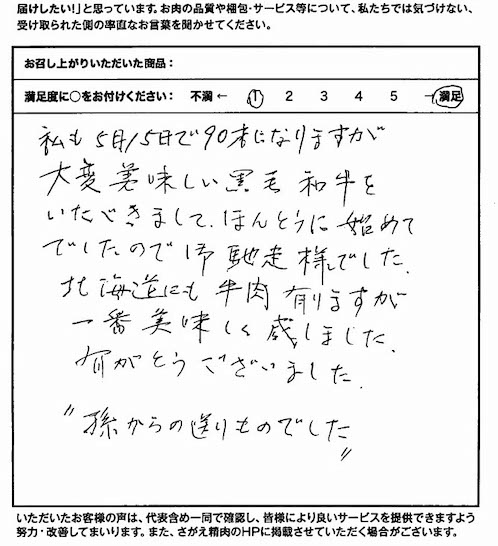 届けしたい！」と思っています。お肉の品質や梱包・サービス等について、私たちでは気づけない、
受け取られた側の率直なお言葉を聞かせてください。
お召し上がりいただいた商品：
満足度に○をお付けください： 不満 ← 1 2 3 4 5 → 満足
私も5月15日で90才になりますが
大変美味しい黒毛和牛を
いただきまして、ほんとうに始めて
でしたので御馳走様でした。
北海道にも牛肉有りますが
一番美味しく感しました。
有がとうございました。
〃孫からの送りものでした〃
いただいたお客様の声は、代表含め一同で確認し、皆様により良いサービスを提供できますよう
努力・改善してまいります。また、さがえ精肉のHPに掲載させていただく場合がございます。